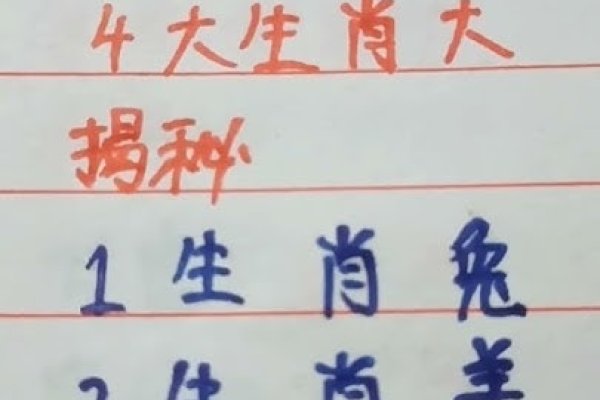 4大生肖大
揭秘
1生肖兔
2生肖羊